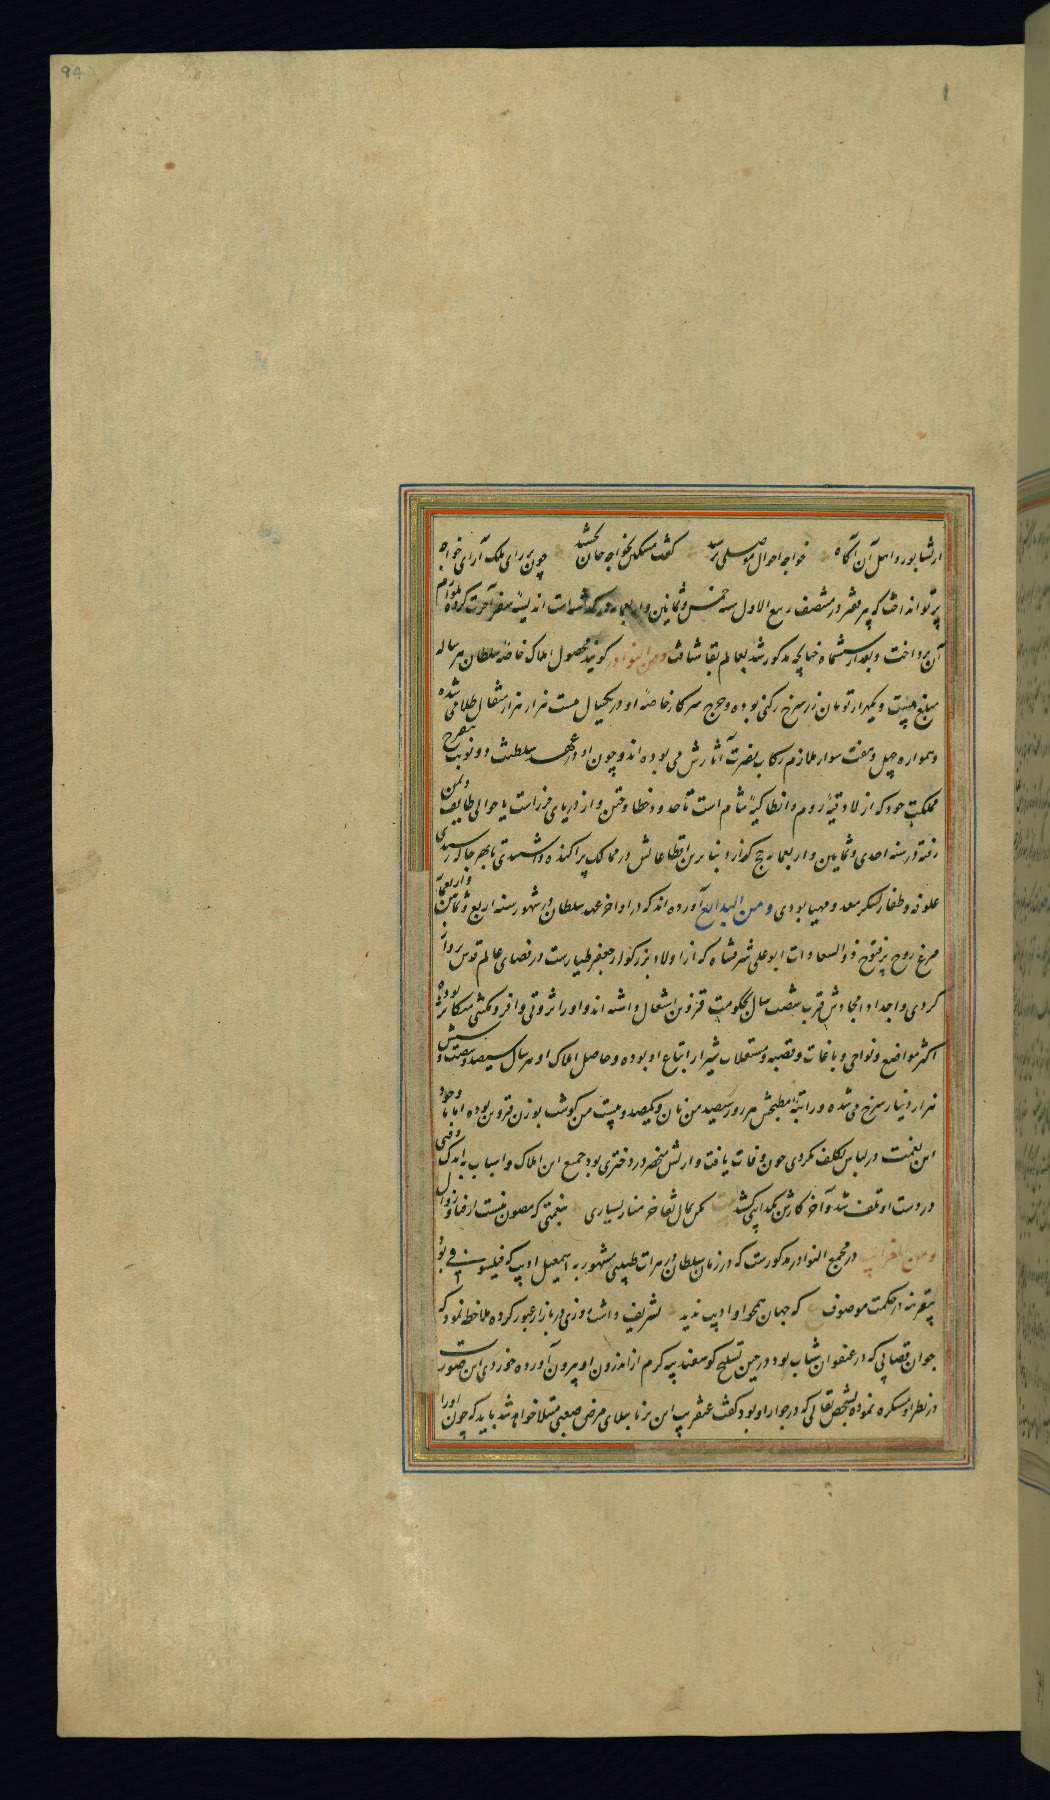 94
از نشابور و اهل آن آگاه خواجه احوال موصلی پرسید گفت مسکین بخواجه جان بخشید چون بر رای ملک آرای خواجه
پرتو انداخت که پیر مقرر در منتصف ربیع الاول سنه خمس و ثمانین و اربعمایه درگذشته است اندیشه سفر آخرت کرده بلوازم
آن پرداخت و بعد از ششماه چنانچه مذکور شد بعالم بقا شتافت و من النوادر گویند محصول املاک خاصه سلطان هر ساله
مبلغ بیست و یکهزار تومان زر سرخ رکنی بوده و خرج سرکار خاصه او در یکسال بیست هزار هزار مثقال طلا می شده
و همواره چهل و هفت سوار ملازم رکاب نصرت آثارش می بوده اند و چون او در عهد سلطنت دو نوبت بتفرج
مملکت خود که از لادقیه روم و انطاکیه شام است تا حدود خطا و ختن و از دریای خزر است یا حوالی طایف و یمن
رفته در سنه احدی و ثمانین و اربعمایه حج گذارد بنا برین اقطاعاتش در ممالک پراکنده داشتندی تا بهر جا که رسیدی
علوفه و علفه لشکر معد و مهیا بودی و من البدایع آورده اند که در اواخر عهد سلطان در شهور سنه اربع و ثمانین و اربعمایه
مرغ روح پر فتوح ذوالسعادات ابوعلی شرفشاه که از اولاد بزرگوار جعفر طیارست در فضای عالم قدس پرواز
کردی و اجداد امجادش قرب شصت سال بحکومت قزوین اشتغال داشته اند و او را ثروتی وافر و مکنتی متکاثر بوده
اکثر مواضع و نواحی و باغات و قصبه و مستغلات شیراز ابتاع او بوده و حاصل املاک او هر سال سیصد و شصت و شش
هزار دینار سرخ می شده و راتبه مطبخش هر روز سیصد من نان و یکصد و بیست من گوشت بوزن قزوین بوده اما با وجود
این نعمت در لباس تکلف نکردی چون وفات یافت وارثش منحصر در دختری بود جمیع این املاک و اسباب به اندک وقتی
در دست او تلف شد و آخر کارش بگدایی کشید بیت مکن بمال تفاخر منازبسیاری بنعمتی که مصون نیست از فنا و زوال
و من الغرایب در مجمع النوادر مذکورست که در زمان سلطان در هرات طبیبی مشهور به اسمعیل ادیب که فیلسوفی بود
بتجربه در حکمت موصوف ع که جهان همچو او ادیب ندید تشریف داشت روزی در بازار عبور کرده ملاحظه نمود که
جوان قصابی که در عنفوان شباب بود در حین تسلیخ گوسفند پیه گرم از اندرون او بیرون آورده خوردی این صورت
در نظر او مستکره نموده بشخص بقالی که در جوار او بود گفت عنقریب این برنا ببلای مرض صعبی مبتلا خواهد شد باید که چون او را